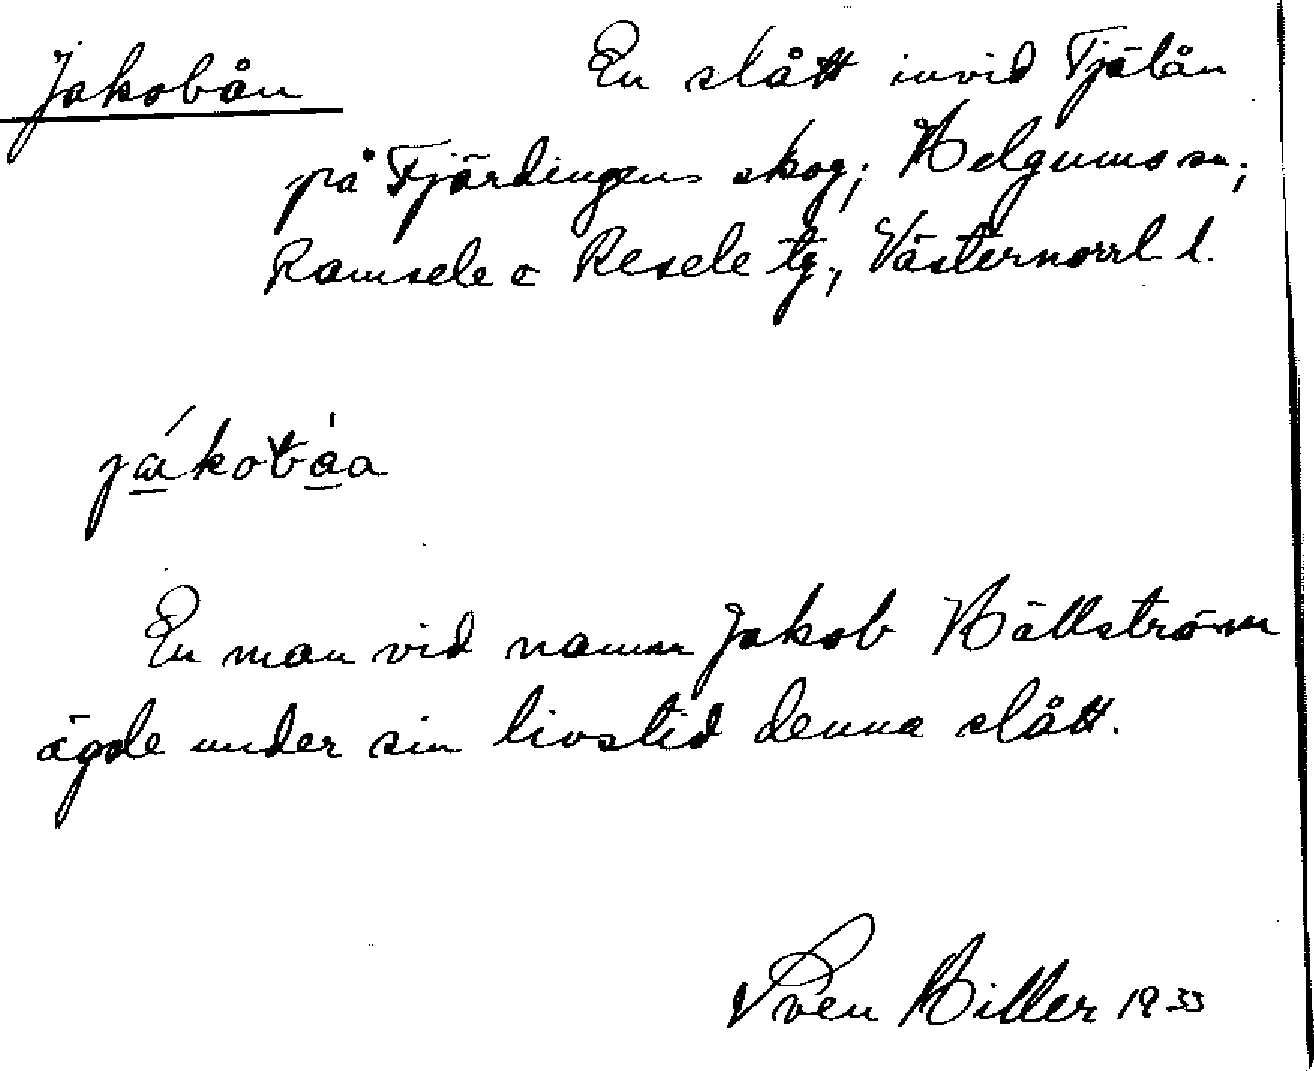 Jakobån En slått invid Fjälån
på Fjärdingens skog; Helgums sn;
Ramsele o Resele tg, Västernorrl l.
jákobáa
En man vid namn Jakob Hällström
ägde under sin livstid denna slått.
Sven Hiller 1933